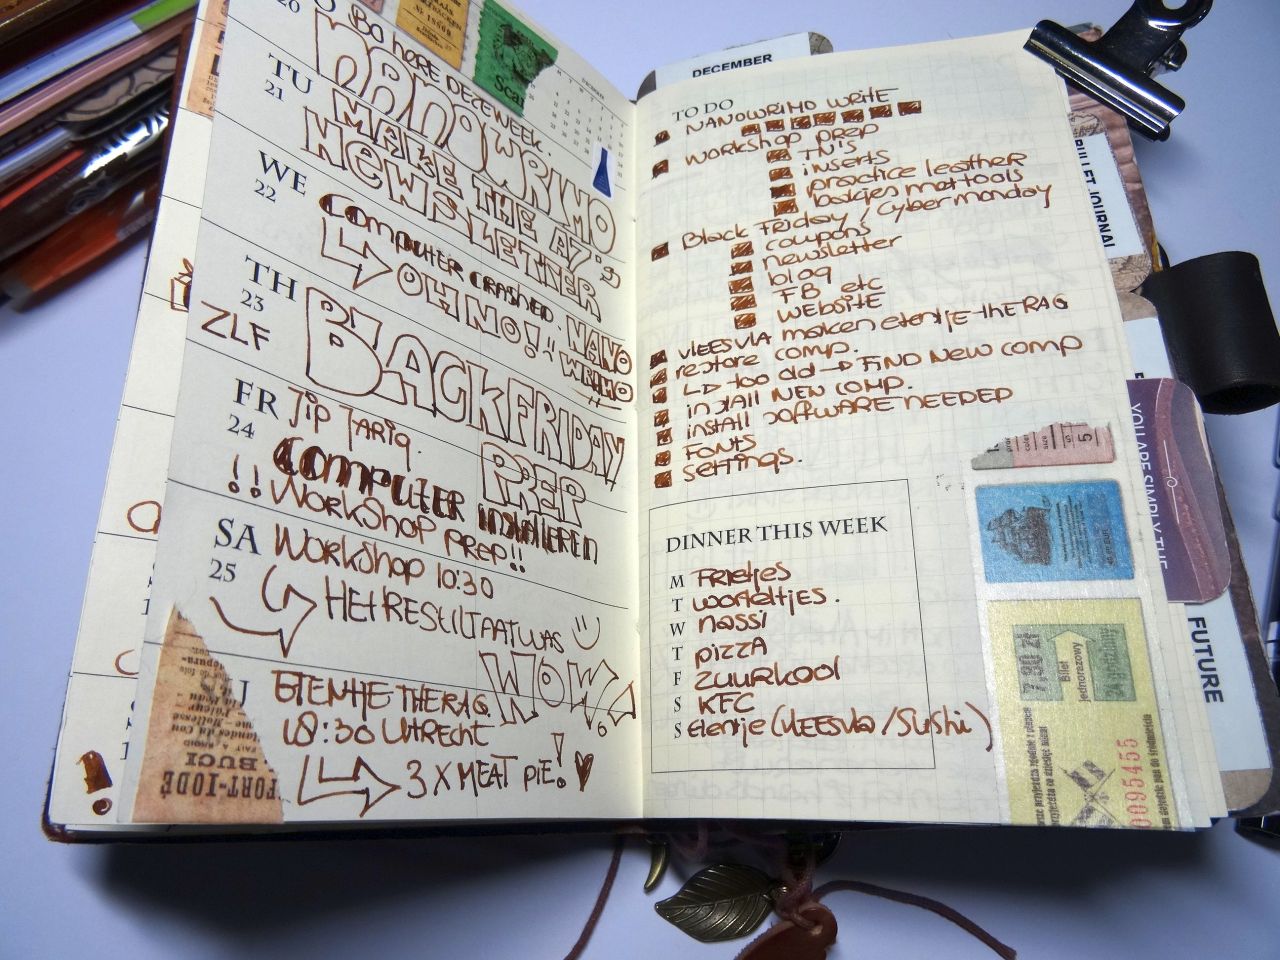 20
BO hele DEZE WEEK.
NANOWRIMO
TU
21
MAKE THE AZ's
NEWSLETTER
WE
22
COMPUTER CRASHED.
OH NO!
NANO
WRIMO
TH
23
ZLF
BLACK FRIDAY
PREP
FR
24
Jip Jariq.
COMPUTER INSTALLEREN
!! WORKSHOP PREP!!
SA
25
WORKSHOP 10:30
HET RESULTAAT WAS
WOW!
SU
ETENTJE THE RAG
18:30 UTRECHT
3 X MEAT PIE!
DECEMBER
TO DO
NANOWRIMO WRITE
WORKSHOP PREP
TN's
inserts
practice leather
bakjes met tools
Black Friday / Cyber monday
coupons
newsletter
blog
FB etc
WEBSITE
VLEESVLA maken etentje theRAG
restore comp.
too old → FIND NEW COMP
install NEW COMP.
install SOFTWARE NEEDED
FONTS
Settings.
DINNER THIS WEEK
M Frietjes
T worteltjes.
W nassi
T pizza
F ZUURKOOL
S KFC
S etentje (VLEESVLA / Sushi)
BULLET JOURNAL
YOU ARE SIMPLY THE
FUTURE
Bilet
jednorazowy
0095455
BUCI